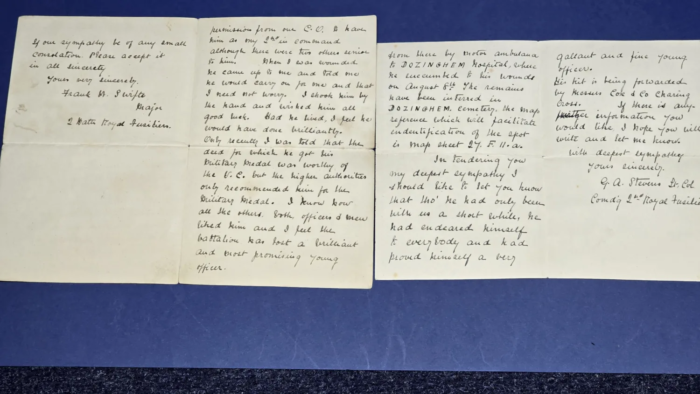 If our sympathy be of any small
consolation Please accept it
in all sincerity.
Yours very sincerely
Frank W.
Major
2 Battn Royal Fusiliers
permission from our C.O. to have
him as my 2nd in command
although there were two others senior
to him. When I was wounded
he came up to me and told me
he would carry on for me and that
I need not worry. I shook him by
the hand and wished him all
good luck. Had he lived, I feel he
would have done brilliantly.
Only recently I was told that the
deed for which he got his
Military Medal was worthy of
the V.C. but the higher authorities
only recommended him for the
Military Medal. I know how
all the others. Both officers & men
liked him and I feel the
battalion has lost a brilliant
and most promising young
officer.
from there by motor ambulance
to DOZINGHEM Hospital, where
he succumbed to his wounds
on August 8th. The remains
have been interred in
DOZINGHEM. Cemetery, the map
reference which will facilitate
indentification of the spot
is map sheet 27. F. 11. a.
In tendering you
my deepest sympathy I
should like to let you know
that tho' he had only been
with us a short while, he
had endeared himself
to everybody and had
proved himself a very
gallant and fine young
officer.
His kit is being forwarded
by Messrs Cox & Co Charing
Cross. If there is any
information you
would like, I hope you will
write and let me know.
With deepest sympathy
Yours sincerely.
G. A. Stevens Lt. Col
Comdg 2nd Royal Fusiliers